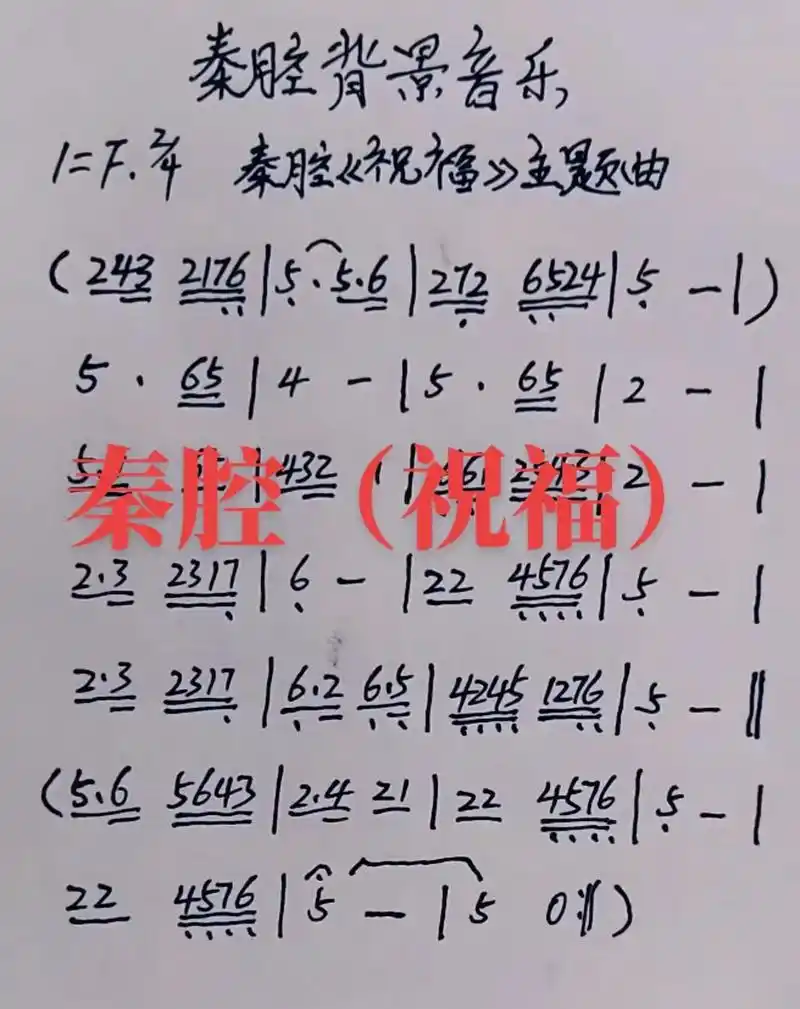 秦腔背景音乐
1=F. 2/4 秦腔《祝福》主题曲
(243 2176|5·5·6|272 6524|5 -|)
5 · 65|4 -|5 · 65|2 -|
432 2 -|
秦腔（祝福）
2·3 2317|6 -|22 4576|5 -|
2·3 2317|6·2 6·5|4245 1276|5 -‖
(5·6 5643|2·4 21|22 4576|5 -|
22 4576|5 -|5 0:‖)